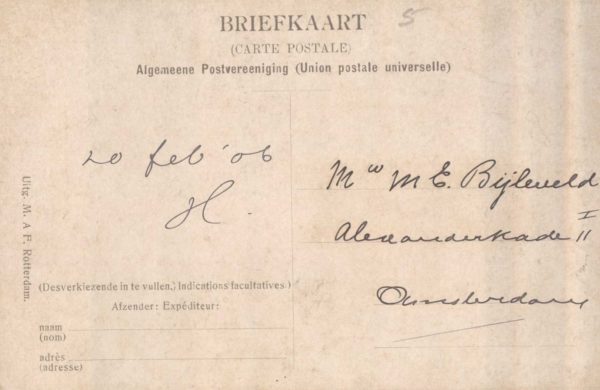 5
BRIEFKAART
(CARTE POSTALE)
Algemeene Postvereeniging (Union postale universelle)
20 feb '06
H.
Mw M. E. Bijleveld
Alexanderkade 11 I
Amsterdam
Uitg. M. A F. Rotterdam.
(Desverkiezende in te vullen.) Indications facultatives)
Afzender: Expéditeur:
naam
(nom)
adrès
(adresse)